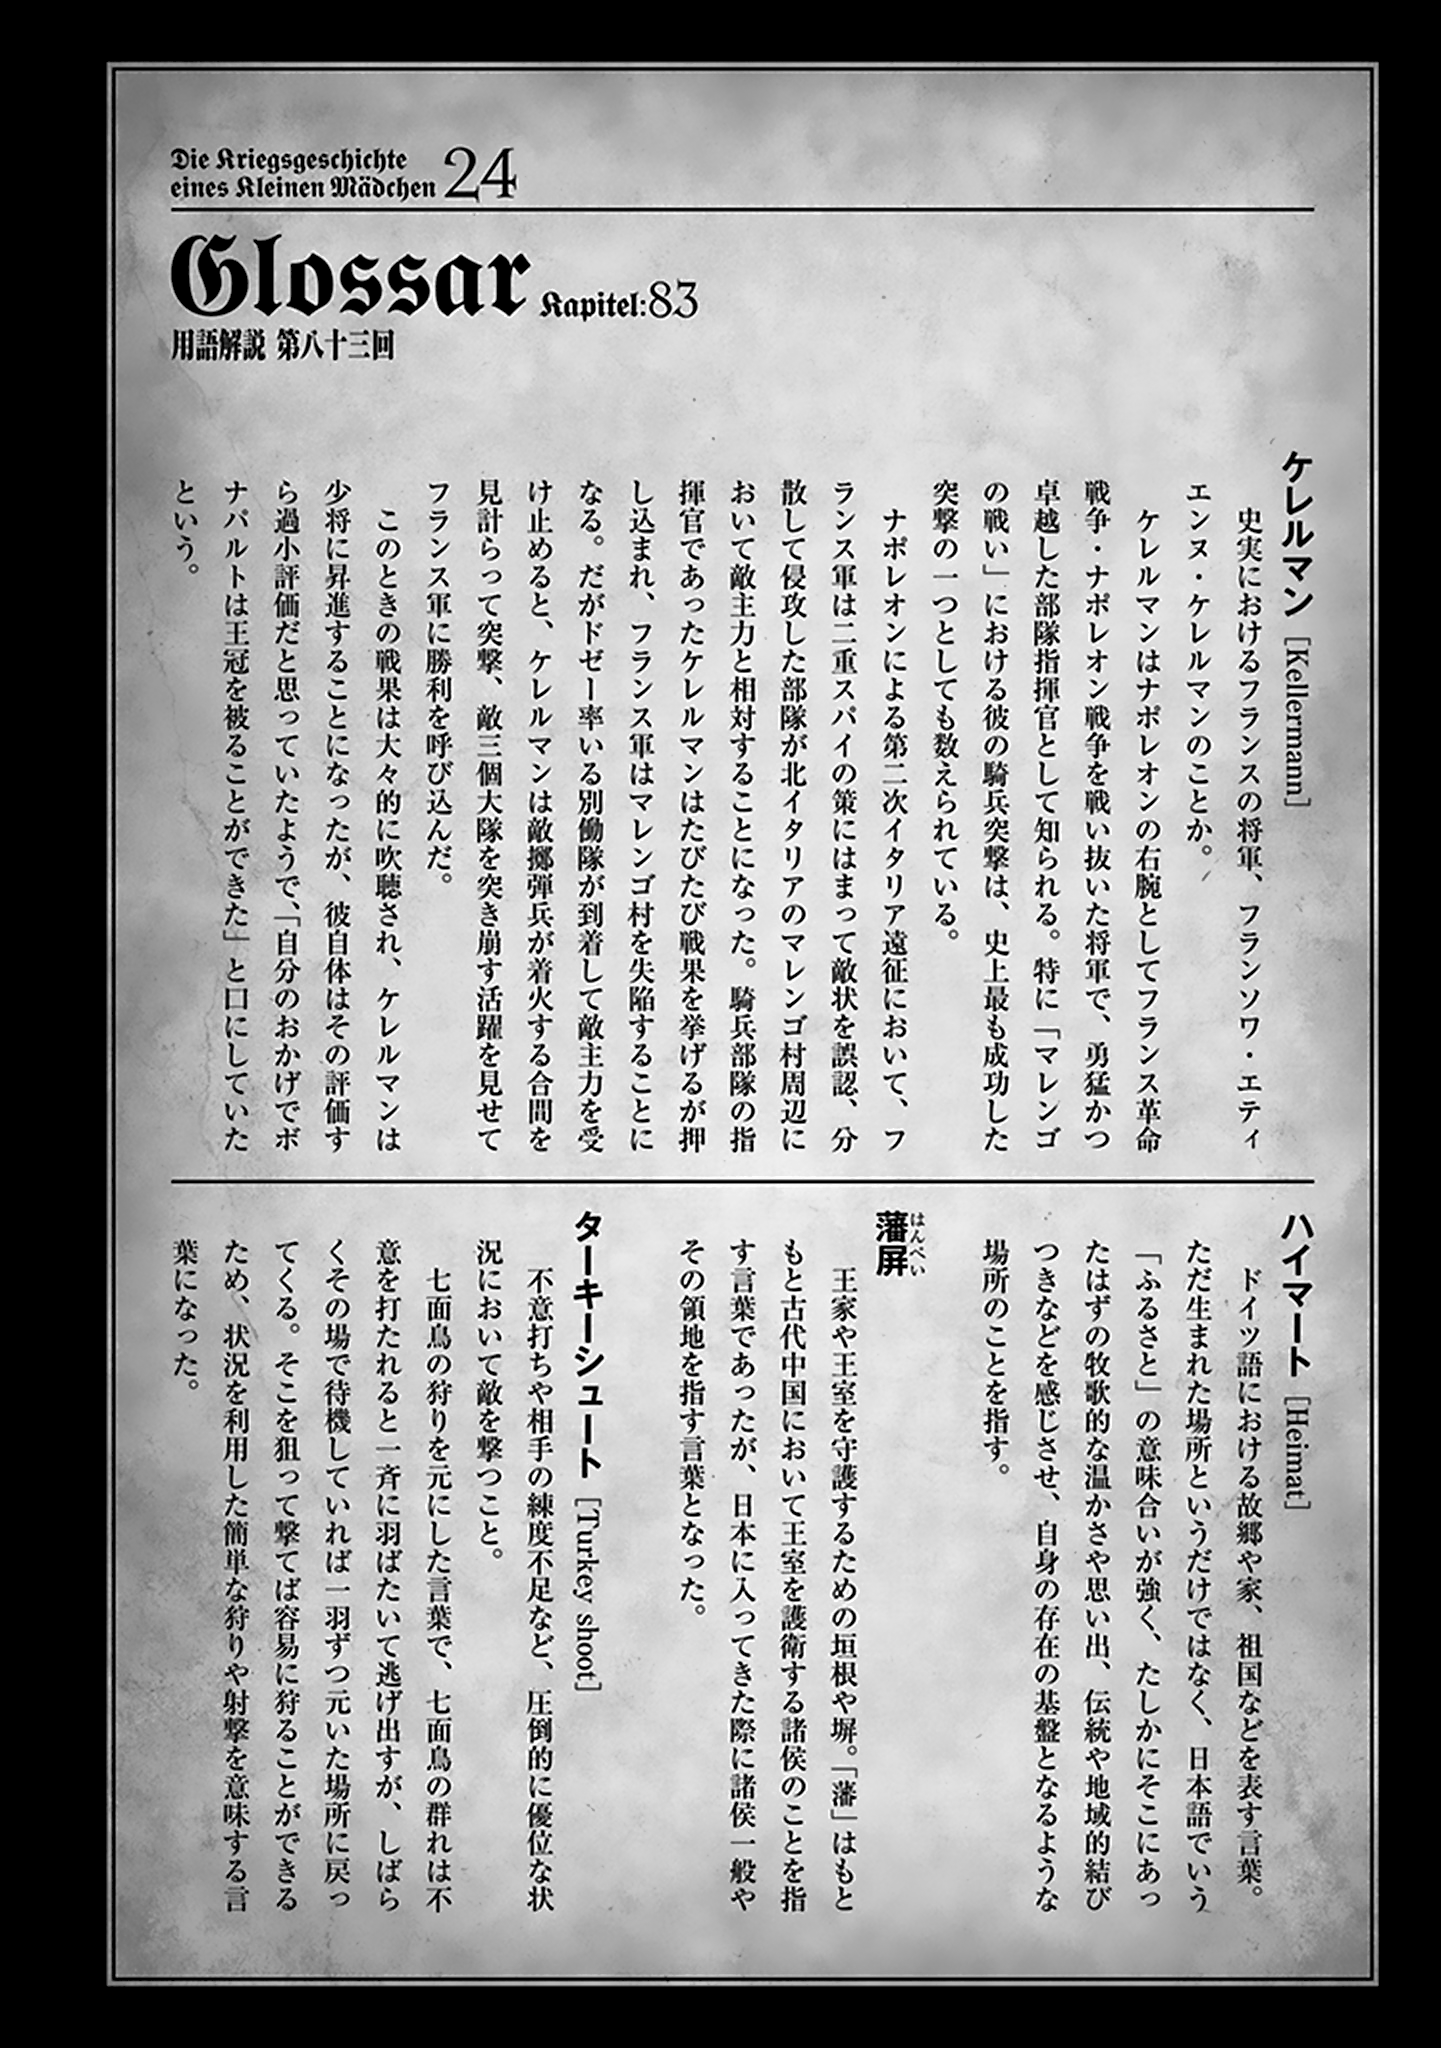 Die Kriegsgeschichte
eines Kleinen Mädchen 24
Glossar Kapitel:83
用語解説 第八十三回
ケレルマン [Kellermann]
史実におけるフランスの将軍、フランソワ・エティ
エンヌ・ケレルマンのことか。
ケレルマンはナポレオンの右腕としてフランス革命
戦争・ナポレオン戦争を戦い抜いた将軍で、勇猛かつ
卓越した部隊指揮官として知られる。特に「マレンゴ
の戦い」における彼の騎兵突撃は、史上最も成功した
突撃の一つとしても数えられている。
ナポレオンによる第二次イタリア遠征において、フ
ランス軍は二重スパイの策にはまって敵状を誤認、分
散して侵攻した部隊が北イタリアのマレンゴ村周辺に
おいて敵主力と相対することになった。騎兵部隊の指
揮官であったケレルマンはたびたび戦果を挙げるが押
し込まれ、フランス軍はマレンゴ村を失陥することに
なる。だがドゼー率いる別働隊が到着して敵主力を受
け止めると、ケレルマンは敵擲弾兵が着火する合間を
見計らって突撃、敵三個大隊を突き崩す活躍を見せて
フランス軍に勝利を呼び込んだ。
このときの戦果は大々的に吹聴され、ケレルマンは
少将に昇進することになったが、彼自体はその評価す
ら過小評価だと思っていたようで、「自分のおかげでボ
ナパルトは王冠を被ることができた」と口にしていた
という。
ハイマート [Heimat]
ドイツ語における故郷や家、祖国などを表す言葉。
ただ生まれた場所というだけではなく、日本語でいう
「ふるさと」の意味合いが強く、たしかにそこにあっ
たはずの牧歌的な温かさや思い出、伝統や地域的結び
つきなどを感じさせ、自身の存在の基盤となるような
場所のことを指す。
藩屏
はんぺい
王家や王室を守護するための垣根や塀。「藩」はもと
もと古代中国において王室を護衛する諸侯のことを指
す言葉であったが、日本に入ってきた際に諸侯一般や
その領地を指す言葉となった。
ターキーシュート [Turkey shoot]
不意打ちや相手の練度不足など、圧倒的に優位な状
況において敵を撃つこと。
七面鳥の狩りを元にした言葉で、七面鳥の群れは不
意を打たれると一斉に羽ばたいて逃げ出すが、しばら
くその場で待機していれば一羽ずつ元いた場所に戻っ
てくる。そこを狙って撃てば容易に狩ることができる
ため、状況を利用した簡単な狩りや射撃を意味する言
葉になった。